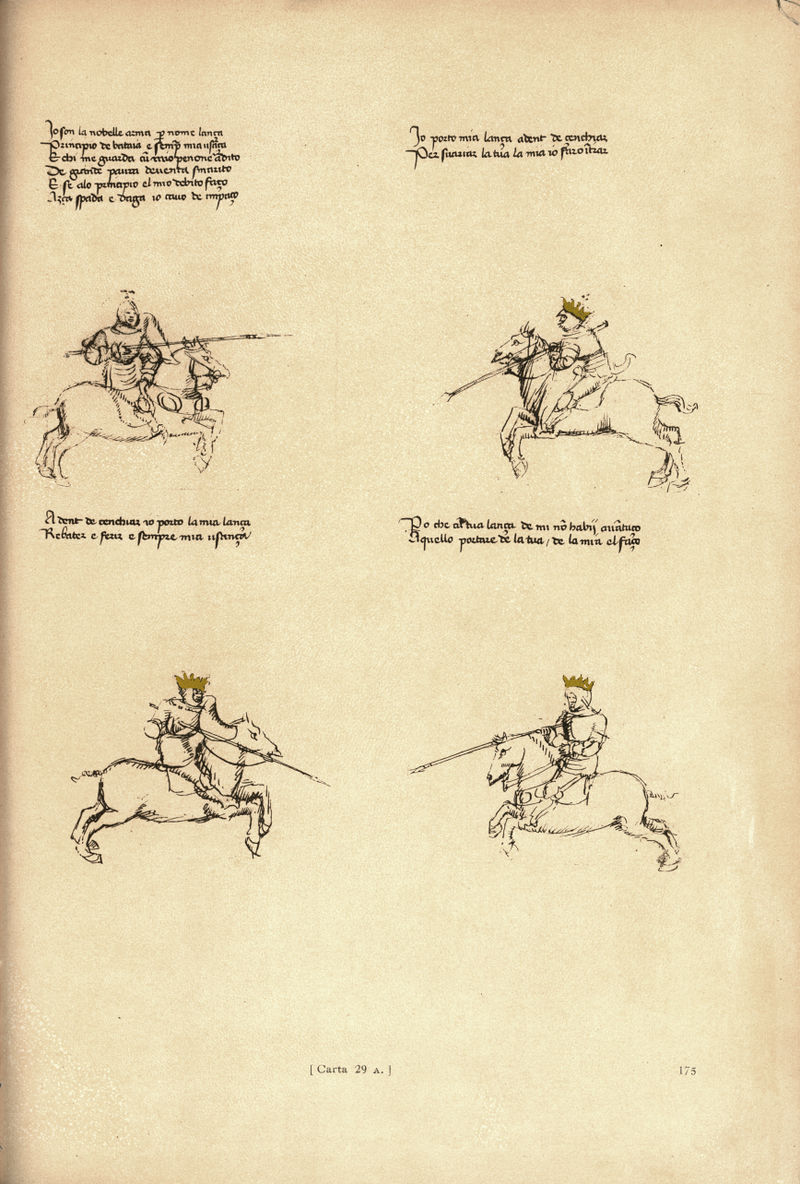 Io son la nobelle arma p nome lança
Principio de bataia e semp mia usãça
E chi me guarda cũ mio penone ardito
De grande paura deventa smarito
E se alo principio el mio debito faço
Aza spada e daga io cavo de impaço
Io porto mia lança a dent de cenchiar
Per svariar la tua la mia io faro ĩtrar
A dent de cenchiar io porto la mia lança
Rebater e ferir e sempre mia usança
Po che a tua lança de mi nõ habij avãtaço
Aquello portare de la tua / de la mia el faço
[ Carta 29 A. ]
175